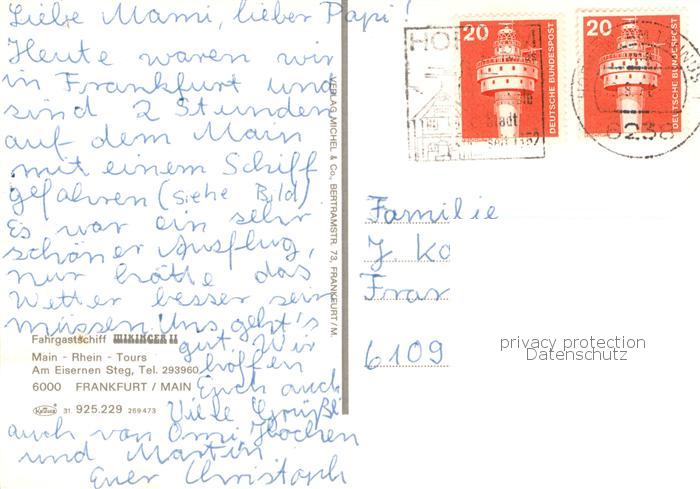 Liebe Mami, lieber Papi!
Heute waren wir
in Frankfurt und
sind 2 Stunden
auf dem Main
mit einem Schiff
gefahren (siehe Bild)
Es war ein sehr
schöner Ausflug,
nur hätte das
Wetter besser sein
müssen. Uns geht's
gut. Wir
hoffen
Euch auch
Viele Grüße
auch von Omi,
und Martin
Euer Christoph
Fahrgastschiff WIKINGER II
Main - Rhein - Tours
Am Eisernen Steg, Tel. 293960
6000 FRANKFURT / MAIN
31. 925.229 269473
VERLAG MICHEL & Co., BERTRAMSTR. 73, FRANKFURT/M.
20
DEUTSCHE BUNDESPOST
20
DEUTSCHE BUNDESPOST
HO
Stadt
seit 1352
6238
Familie
J. Ko
Fran
6109
privacy protection
Datenschutz